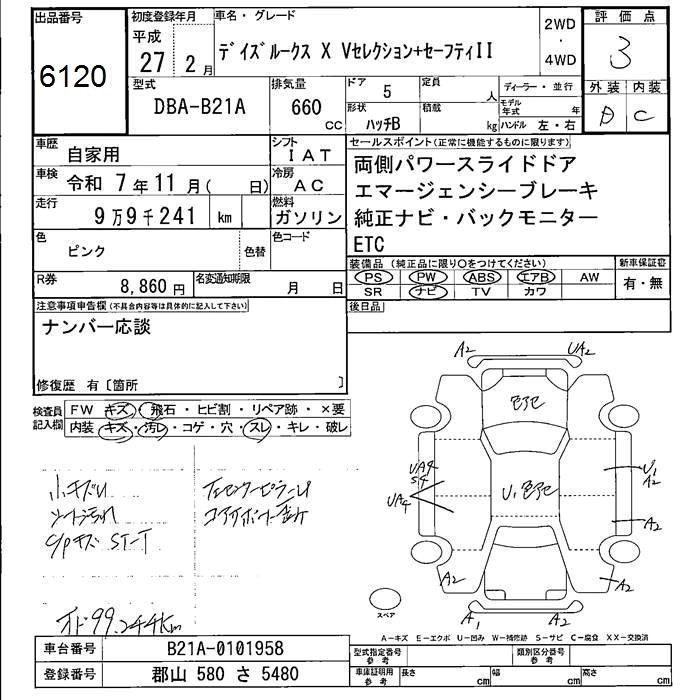 出品番号
6120
初度登録年月
平成
27 2月
車名・グレード
デイズルークス X Vセレクション+セーフティII
2WD
・
4WD
評価点
3
型式
DBA-B21A
排気量
660
CC
ドア
5
定員
人
形状
ハッチB
積載
kg
ディーラー・並行
モデル年式
年
ハンドル 左・右
外装 内装
D C
車歴
自家用
シフト
IAT
車検
令和 7年11月( 日)
冷房
AC
走行
9万9千241 km
燃料
ガソリン
色
ピンク
色替
色コード
R券
8,860円
名変通知期限
月 日
セールスポイント(正常に機能するものに限ります)
両側パワースライドドア
エマージェンシーブレーキ
純正ナビ・バックモニター
ETC
装備品(純正品に限り○をつけてください)
PS PW ABS エアB AW
SR ナビ TV カワ
新車保証書
有・無
後日品
注意事項申告欄(不具合内容等は具体的に記入して下さい)
ナンバー応談
修復歴 有〔箇所 〕
検査員記入欄
FW キズ・飛石・ヒビ割・リペア跡・×要
内装 キズ・汚レ・コゲ・穴・スレ・キレ・破レ
小キズU
シート汚れ
C/Pキズ ST-T
オド99,244km
A2 UA2
色アセ
UA4
S4
UA4
U、色アセ
U1
A2
A2
A2 A2
A1 A2
スペア
A-キズ E-エクボ U-凹み W-補修跡 S-サビ C-腐食 XX-交換済
車台番号
B21A-0101958
登録番号
郡山 580 さ 5480
型式指定番号
参考
類別区分番号
参考
車庫証明用
参考
長さ cm 幅 cm 高さ cm